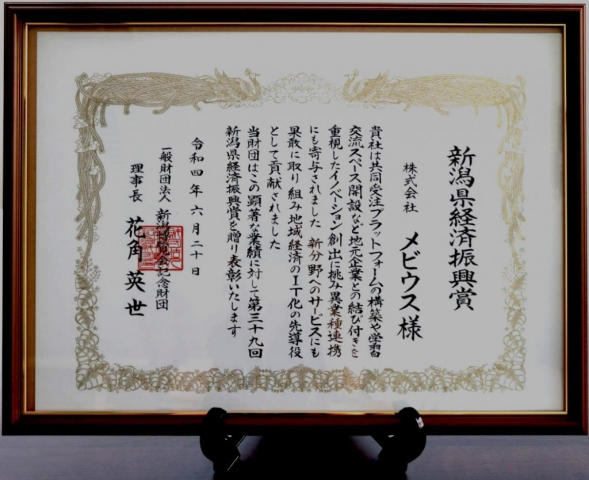 新潟県経済振興賞
株式会社 メビウス 様
貴社は共同受注プラットフォームの構築や学習
交流スペース開設など地元企業との結び付きを
重視したイノベーション創出に挑み異業種連携
にも寄与されました 新分野へのサービスにも
果敢に取り組み地域経済のIT化の先導役
として貢献されました
当財団はこの顕著な業績に対して第三十九回
新潟県経済振興賞を贈り表彰いたします
令和四年六月二十日
一般財団法人 新潟 記念財団
理事長 花角英世